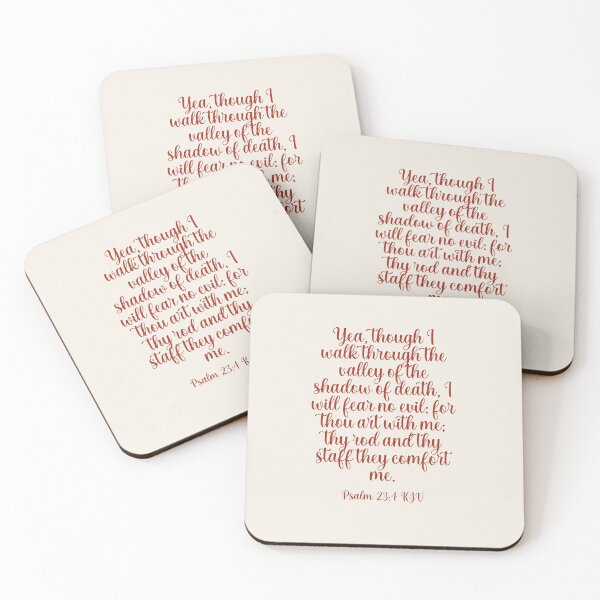 Yea, though I
walk through the
valley of the
shadow of death, I
will fear no evil: for
me;
thy
Yea, though I
walk through the
valley of the
shadow of death, I
will fear no evil: for
thou art with me;
thy rod and thy
staff they comfort
Yea, though I
walk through the
valley of the
shadow of death, I
will fear no evil: for
thou art with me;
thy rod and thy
staff they comfort
me.
Psalm 23:4
Yea, though I
walk through the
valley of the
shadow of death, I
will fear no evil: for
thou art with me;
thy rod and thy
staff they comfort
me.
Psalm 23:4 KJV